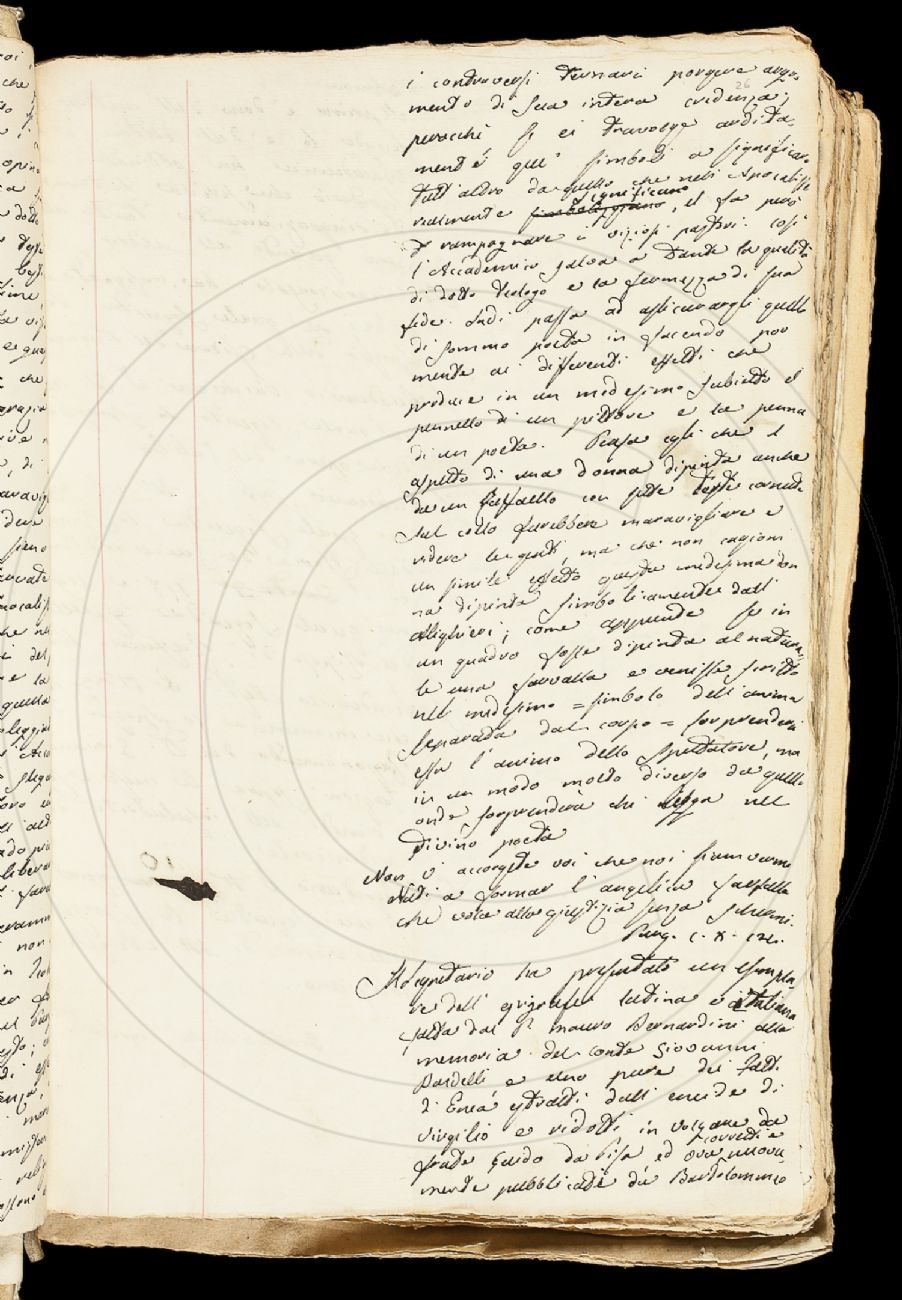 i controversi ternarii porgere argo-
26
mento di sua intera credenza;
perocchè se ei travolge ardita-
mente que' simboli a significare
tutt'altro da quello che nell'Apocalisse
realmente significano, il fa però
a rampognare i viziosi pastori. Così
l'Accademico salva a Dante la qualità
di dotto Teologo e la fermezza di sua
fede. Indi passa ad assicurargli quella
di sommo poeta in facendo por
mente ai differenti effetti che
produce in un medesimo subietto il
pennello di un pittore e la penna
di un poeta. Pensa egli che l'
aspetto di una donna dipinta anche
da un Raffaello con sette teste cornute
sul collo farebbe maravigliare e
ridere le genti, ma che non cagioni
un simile effetto questa medesima don
na dipinta simbolicamente dall'
Alighieri; come apprende se in
un quadro fosse dipinta al natura-
le una farfalla e venisse scritto
nel medesimo = simbolo dell'anima
separata dal corpo = sorprenderi
essa l'animo dello spettatore, ma
in un modo molto diverso da quello
onde sorprenderà chi legga nel
divino poeta
Non v'accorgete voi che noi siam vermi
Nati a formar l'angelica farfalla
che vola alla giustizia senza schermi.
Purg. C. X.
Il segretario ha presentato un esempla-
re dell'epigrafe latina e italiana
fatta dal P. Mauro Bernardini alla
memoria del conte Giovanni
Bardelli e uno pure dei Fatti
d'Enea estratti dall'eneide di
Virgilio e ridotti in volgare da
frate Guido da Pisa ed ora corretti e nuova
mente pubblicati da Bartolommeo